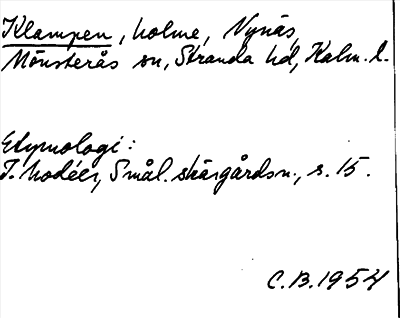 Klampen, holme, Nynäs,
Mönsterås sn, Stranda hd, Kalm. l.
Etymologi:
I. Modéer, Smål. skärgårdsn., s. 15.
C.B. 1954